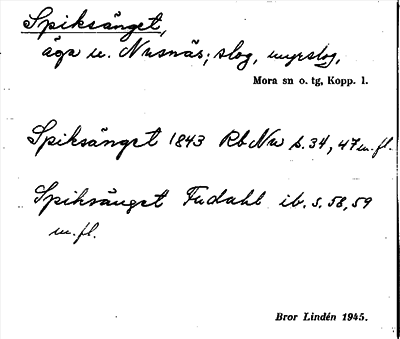 Spiksänget,
äga u. Nusnäs; slog, myrslog,
Mora sn o. tg, Kopp. l.
Spiksänget 1843 Rb Nw s. 34, 47 m. fl.
Spiksänget Fudahl ib. s. 58, 59
m. fl.
Bror Lindén 1945.